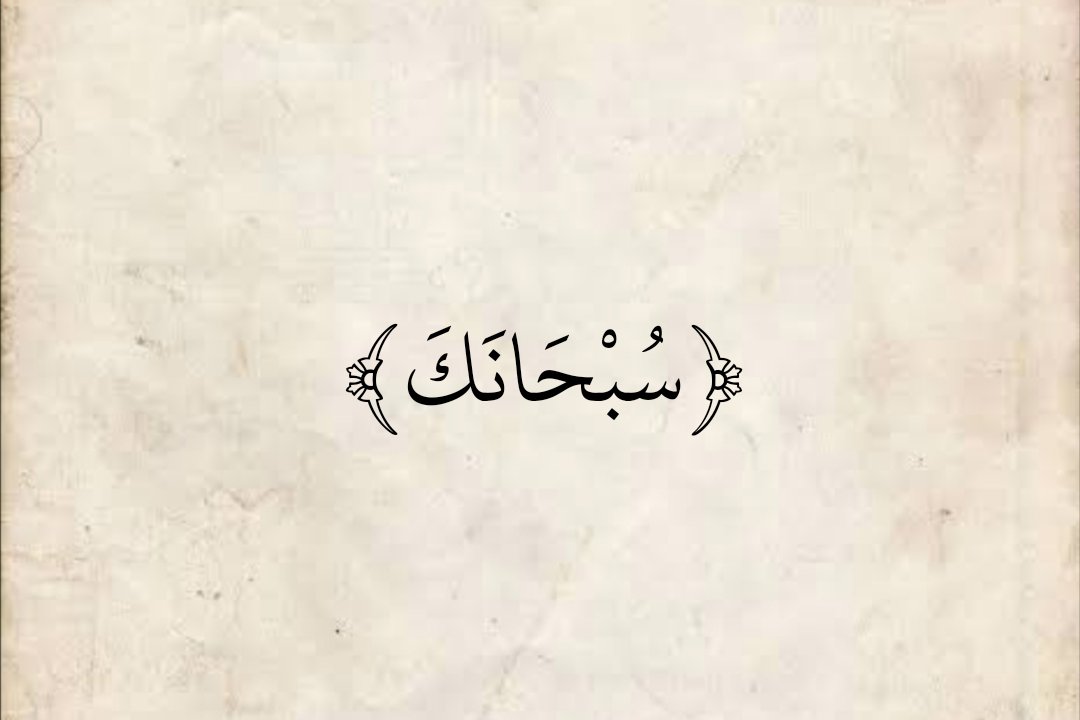 ﴿سُبْحَانَكَ﴾